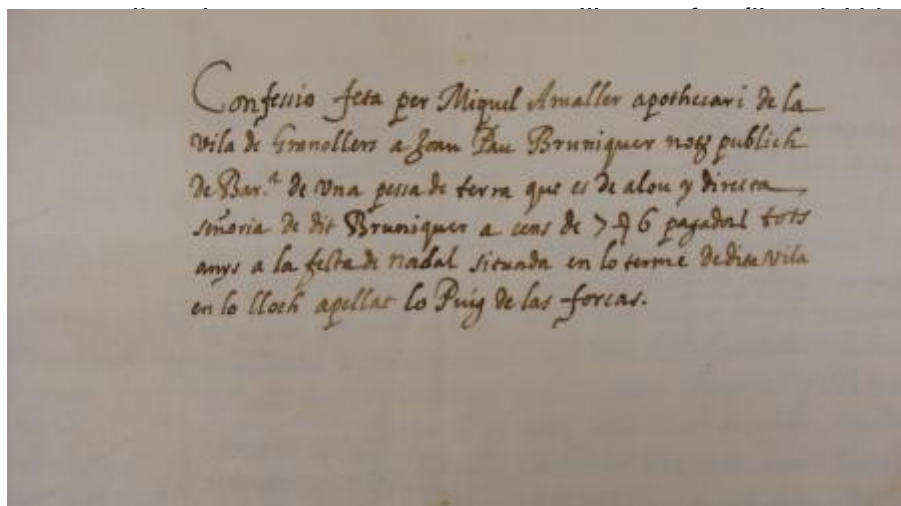 Confessio feta per Miquel Amaller apothecari de la
vila de Granollers a Joan Pau Bruniquer notͬ publich
de Bar.ᵃ de vna pessa de terra que es de alou y directa
señoria de dit Bruniquer a cens de 7 6 pagadors tots
anys a la festa de nadal situada en lo terme de dita vila
en lo lloch apellat lo Puig de las forcas.